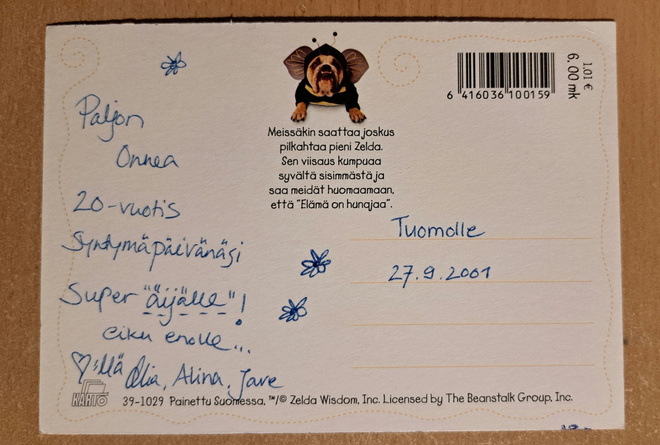 Paljon
Onnea
20-vuotis
Syntymäpäivänäsi
Super "äijälle"!
eiku enolle...
♡:llä Olia, Alina, Jare
Meissäkin saattaa joskus
pilkahtaa pieni Zelda.
Sen viisaus kumpuaa
syvältä sisimmästä ja
saa meidät huomaamaan,
että "Elämä on hunajaa".
6 416036 100159
1.01 €
6.00 mk
Tuomolle
27.9.2001
KARTO
39-1029 Painettu Suomessa, ™/© Zelda Wisdom, Inc. Licensed by The Beanstalk Group, Inc.